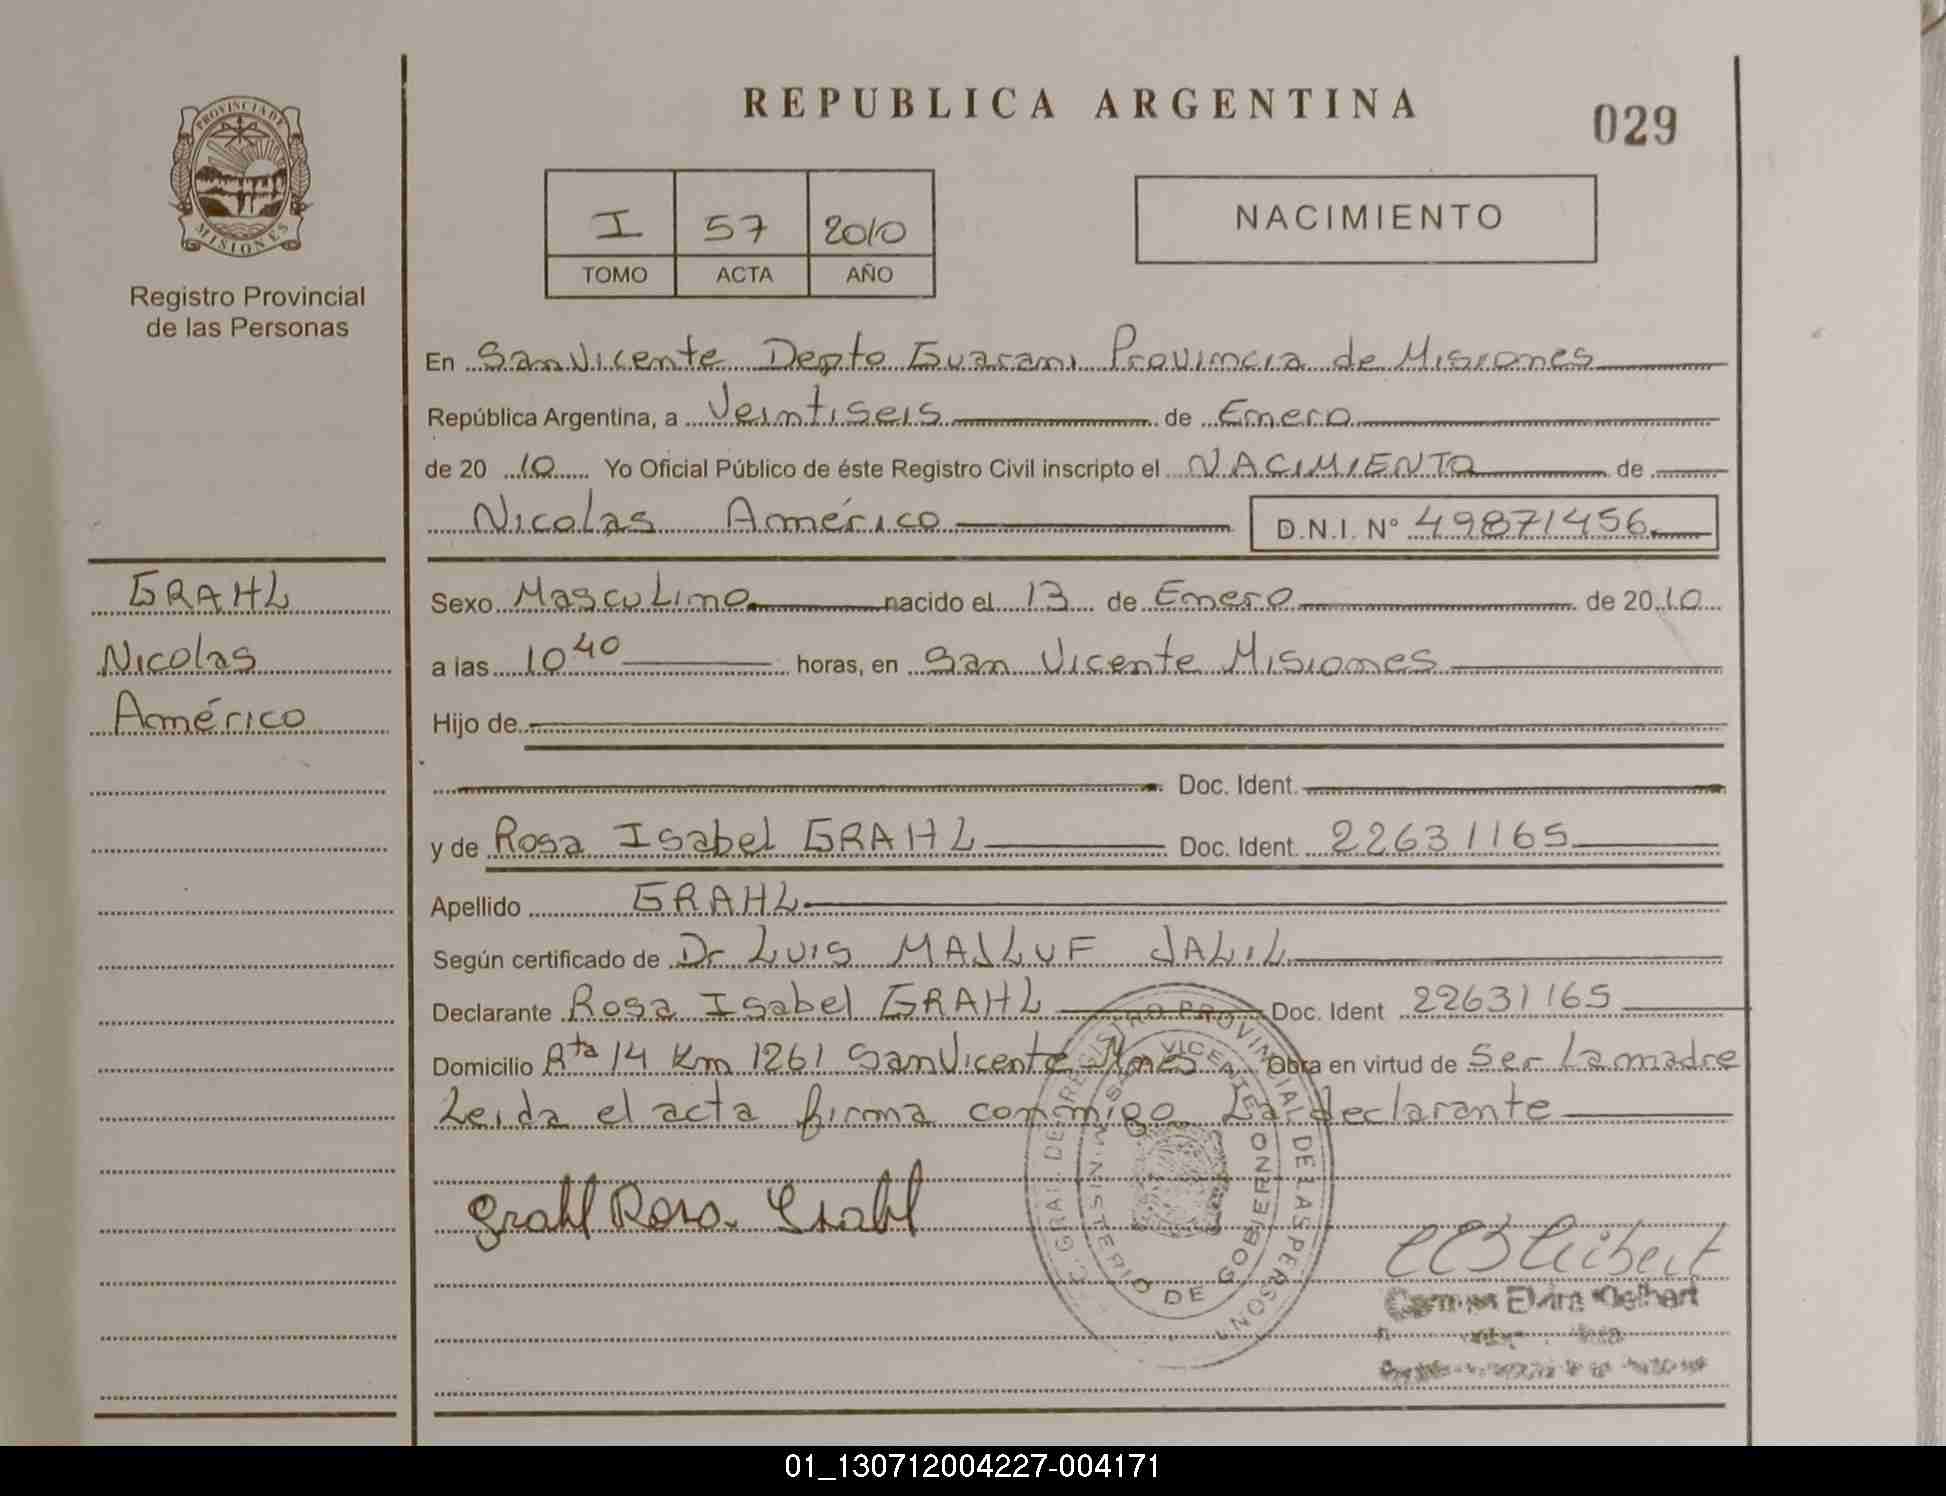 REPUBLICA ARGENTINA
029
PROVINCIA DE
MISIONES
Registro Provincial
de las Personas
I 57 2010
TOMO ACTA AÑO
NACIMIENTO
En San Vicente Depto Guarani Provincia de Misiones
República Argentina, a Veintiseis de Enero
de 20 10 Yo Oficial Público de éste Registro Civil inscripto el NACIMIENTO de
Nicolas Américo D.N.I. N° 49871456
GRAHL
Nicolas
Américo
Sexo Masculino nacido el 13 de Enero de 2010
a las 10 40 horas, en San Vicente Misiones
Hijo de
Doc. Ident.
y de Rosa Isabel GRAHL Doc. Ident. 22631165
Apellido GRAHL
Según certificado de Dr LUIS MAJLUF JALIL
Declarante Rosa Isabel GRAHL Doc. Ident 22631165
Domicilio Rta 14 Km 1261 San Vicente Mnes Obra en virtud de Ser La madre
Leida el acta firma conmigo La declarante
Grahl Rosa Isabel
GRAL. DE REGISTRO PROVINCIAL DE LAS PERSONAS
MINISTERIO DE GOBIERNO
VICENTE
01_130712004227-004171